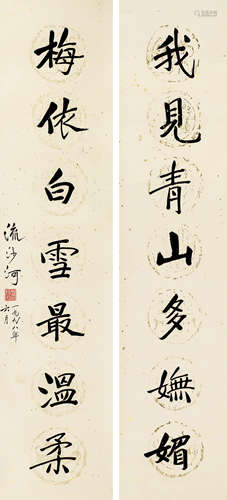 我見青山多嫵媚
梅依白雪最溫柔
流沙河
一九八八年
六月